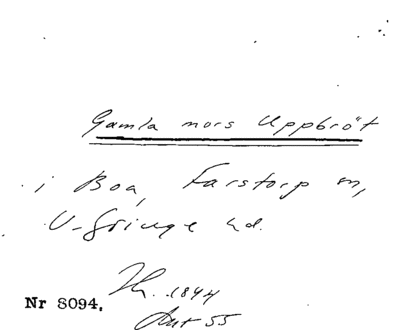 Gamla mors Uppbröt
i Boa, Farstorp sn,
V-Göinge hd.
Th. 1844
Nr 8094.
Ant 55